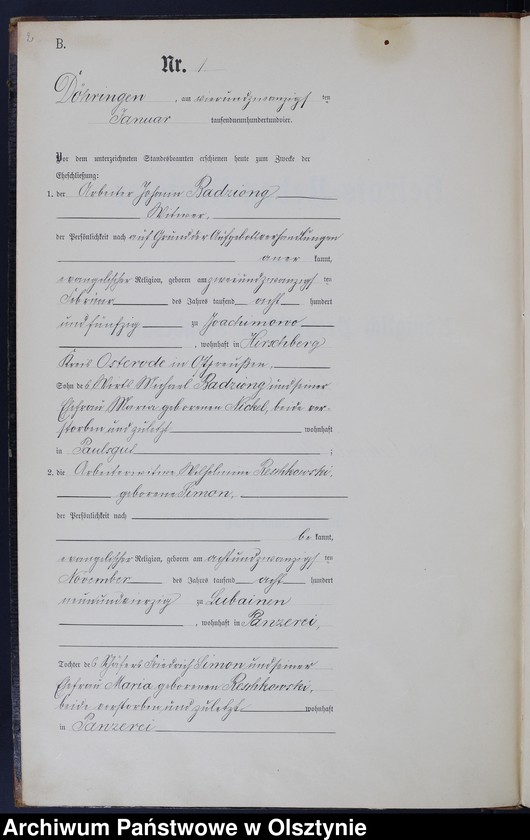 2
B.
Nr. 1
Döhringen, am vierundzwanzigsten
Januar tausendneunhundertundvier.
Vor dem unterzeichneten Standesbeamten erschienen heute zum Zwecke der
Eheschließung:
1. der Arbeiter Johann Badziong
Witwer,
der Persönlichkeit nach auf Grund der Aufgebotsverhandlungen
aner kannt,
evangelischer Religion, geboren am zweiundzwanzigsten
Februar des Jahres tausend acht hundert
undfünfzig zu Joachumowo
, wohnhaft in Hirschberg
Kreis Osterode in Ostpreußen.
Sohn des Wirts Michael Badziong und seiner
Ehefrau Maria geborenen Nickel, beide ver-
storben und zuletzt wohnhaft
in Paulsgut ;
2. die Arbeiterwitwe Wilhelmine Reschkowski,
geborene Simon,
der Persönlichkeit nach
be kannt,
evangelischer Religion, geboren am achtundzwanzigsten
November des Jahres tausend acht hundert
neunundvierzig zu Lubainen
, wohnhaft in Panzerei,
Tochter des Schäfers Friedrich Simon und seiner
Ehefrau Maria geborenen Reschkowski,
beide verstorben und zuletzt wohnhaft
in Panzerei
Archiwum Państwowe w Olsztynie